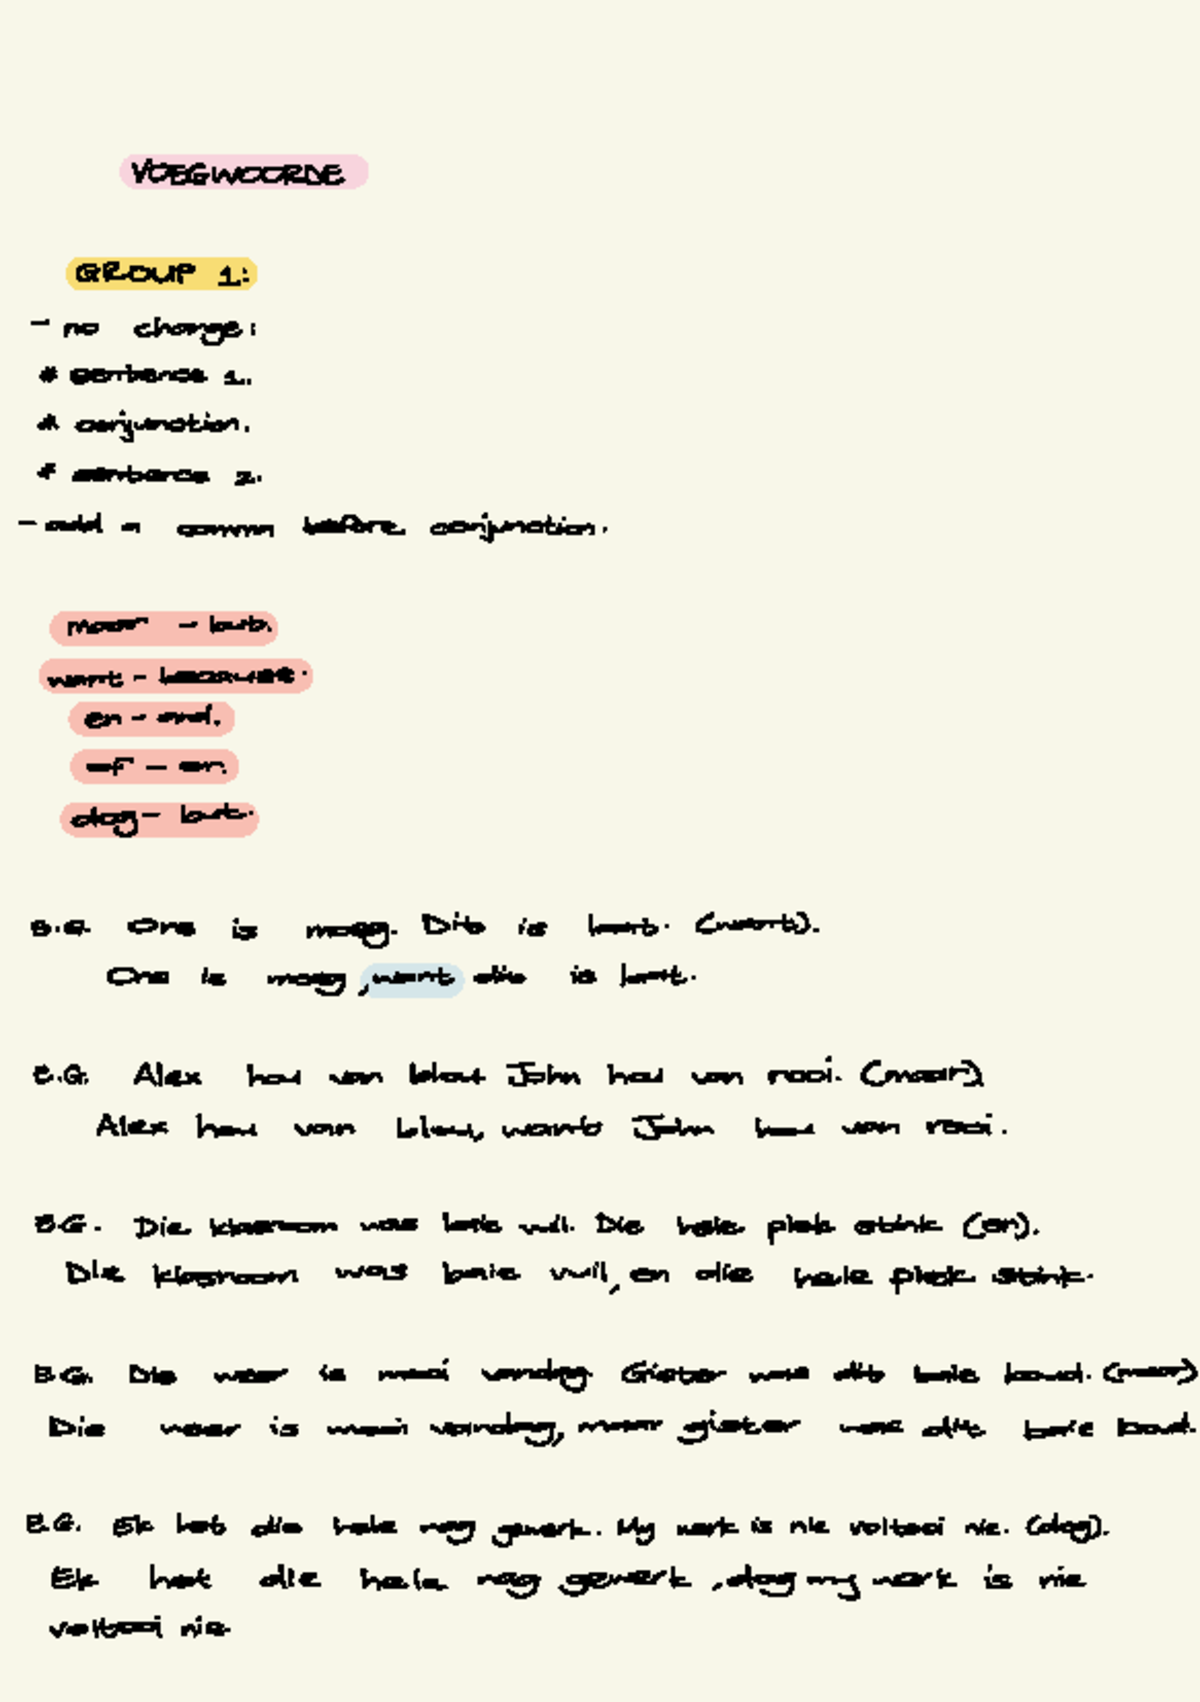 VOEGWOORDE
GROUP 1:
- no change:
* sentence 1.
* conjunction.
* sentence 2.
- add a comma before conjunction.
maar - but.
want - because.
en - and.
of - or.
dog - but.
E.G. Ons is moeg. Dit is laat. (want).
Ons is moeg, want dit is laat.
E.G. Alex hou van blou John hou van rooi. (maar)
Alex hou van blou, want John hou van rooi.
E.G. Die klasroom was baie vuil. Die hele plek stink (en).
Die klasroom was baie vuil, en die hele plek stink.
E.G. Die weer is mooi vandag. Gister was dit baie koud. (maar)
Die weer is mooi vandag, maar gister was dit baie koud.
E.G. Ek het die hele nag gewerk. My werk is nie voltooi nie. (dog).
Ek het die hele nag gewerk, dog my werk is nie
voltooi nie